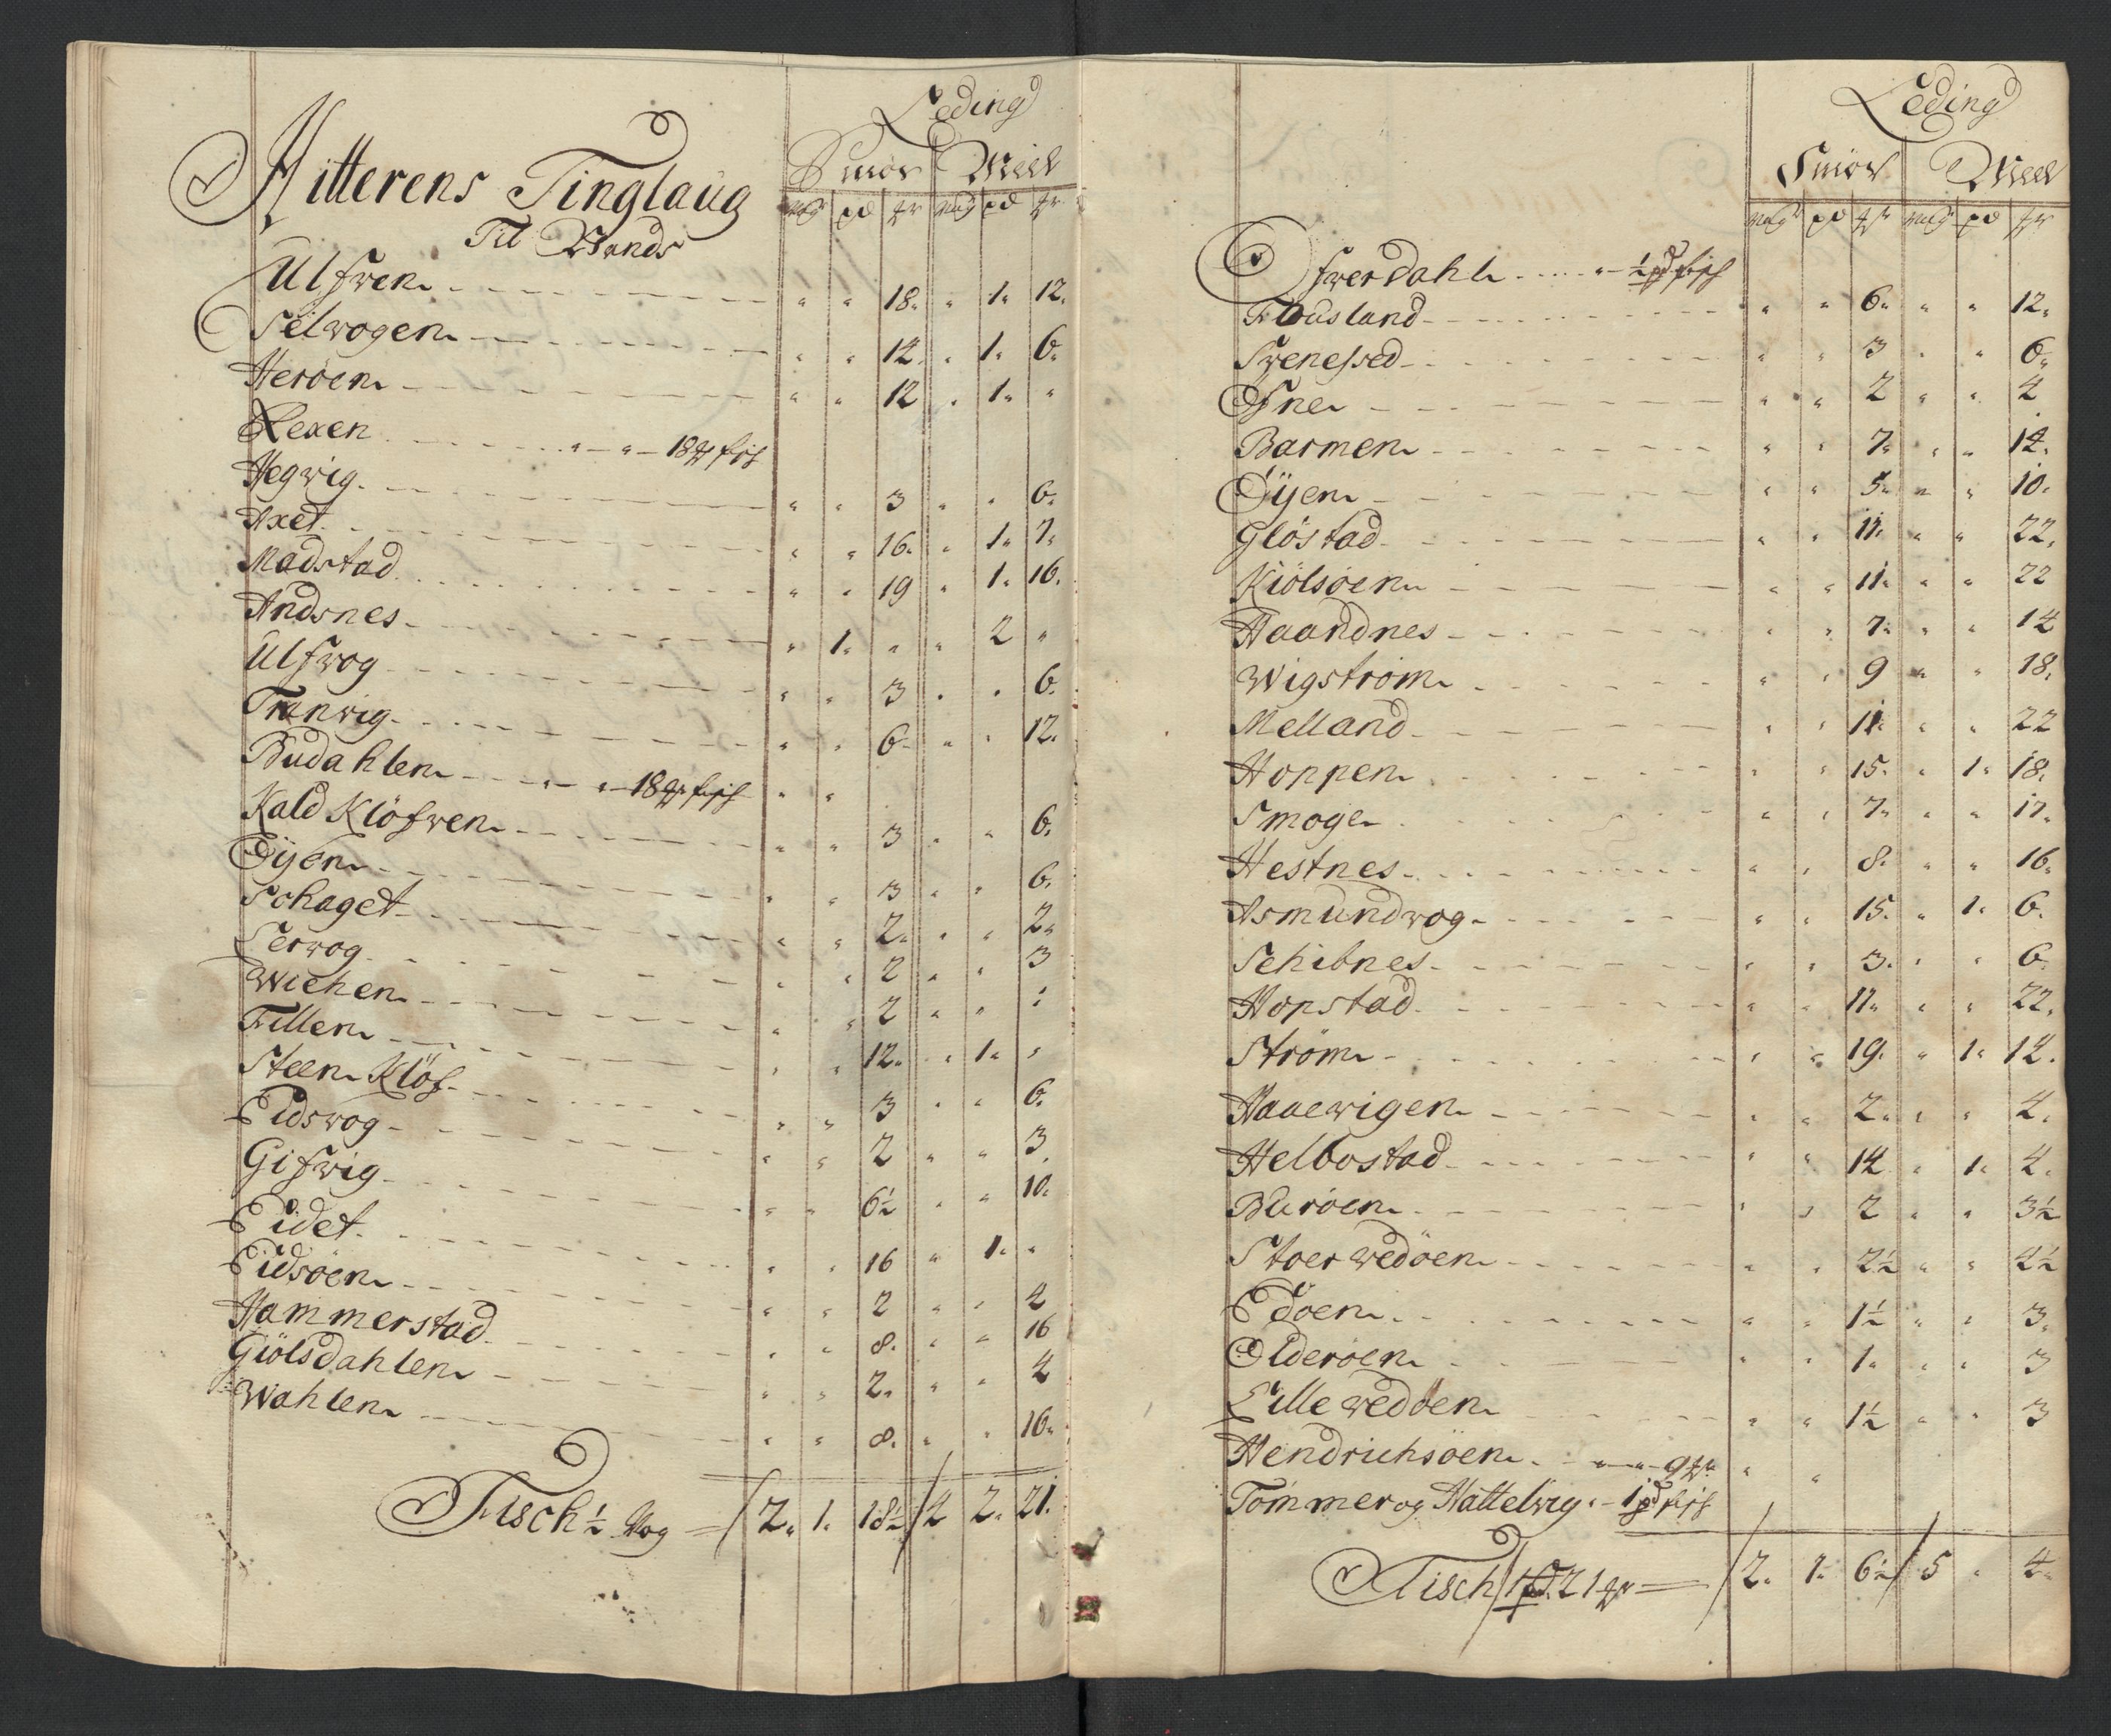 Leding
Smör Meel
wog pd ℔ wog pd ℔
Hitterens Tinglaug
Til Lands
Ulfwen " " 18. " 1. 12.
Selwogen " " 14. " 1. 6.
Heröen " " 12 " 1. "
Lexen " " 18 ℔ fisch
Hegwig " " 3 " " 6.
Axet " " 16. " 1. 7.
Madstad " " 19 " 1. 16.
Andsnes " 1. " " 2 "
Ulfwog " " 3 " " 6.
Tranwig " " 6 " " 12.
Budahlen " " 18 ℔ fisch " "
Kald Klöfwen " " 3 " " 6.
Öyen " " 3 " " 6.
Schaget " " 2. " " 2.
Lerwog " " 2 " " 3
Wiehen " " 2 " " "
Fillen " " 12. " 1. "
Steen Klöf " " 3 " " 6.
Eidswog " " 2 " " 3.
Gifwig " " 6½ " " 10.
Eidet " " 16 " 1. "
Eidsöen " " 2 " " 4
Hammerstad " " 8. " " 16
Giölsdahlen " " 2. " " 4
Wahlen " " 8. " " 16.
Fisch ½ Wog = 2. 1. 18½ 4 2. 21.
Leding
Smör Meel
wog pd ℔ wog pd ℔
Ofwerdahl " ½ pd fisch
Fousland " " 6. " " 12.
Swenessed " " 3 " " 6.
Ofne " " 2 " " 4
Barmen " " 7. " " 14.
Öyen " " 5. " " 10.
Glöstad " " 11. " " 22.
Kiölsöen " " 11. " " 22
Haandnes " " 7. " " 14
Wigström " " 9 " " 18.
Melland " " 11. " " 22
Hoppen " " 15. " 1. 18.
Smoge " " 7. " " 17.
Hestnes " " 8. " " 16.
Asmundwog " " 15. " 1. 6.
Schibnes " " 3. " " 6
Hopstad " " 11. " " 22.
Ström " " 19. " 1. 14.
Haaewigen " " 2. " " 4.
Helbostad " " 14 " 1. 4.
Buröen " " 2 " " 3½
Stoer wedöen " " 2½ " " 4½
Edöen " " 1½ " " 3.
Olderöen " " 1. " " 3
Lille wedöen " " 1½ " " 3
Hendrichsöen " " 9 ℔ " "
Tömmer og Hattelwig " 1 pd fisch
Fisch 1 pd. 21 ℔ = 2. 1. 6½ 5 " 4.